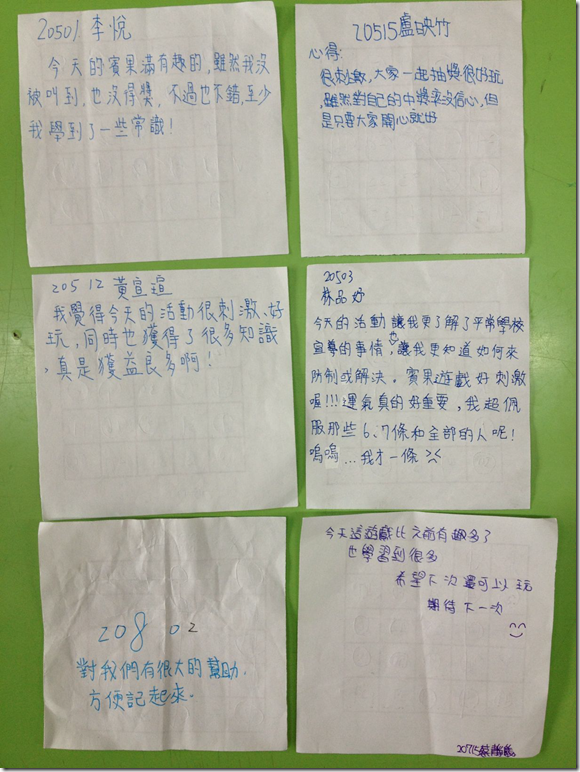 20501 李悅
今天的賓果滿有趣的,雖然我沒
被叫到,也沒得獎,不過也不錯,至少
我學到了一些常識!
20515盧映竹
心得:
很刺激,大家一起抽獎很好玩
,雖然對自己的中獎率沒信心,但
是只要大家開心就好
20512 黃宣瑄
我覺得今天的活動很刺激、好
玩,同時也獲得了很多知識
,真是獲益良多啊!
20503
林品妤
今天的活動讓我更了解了平常學校
宣導的事情,讓我更知道如何來
防制或解決。賓果遊戲好刺激
喔!!!運氣真的好重要,我超佩
服那些6、7條和全部的人呢!
嗚嗚...我才一條 ><
20802
對我們有很大的幫助.
方便記起來.
今天這遊戲比之前有趣多了
也學習到很多
希望下次還可以玩
期待下一次
20715